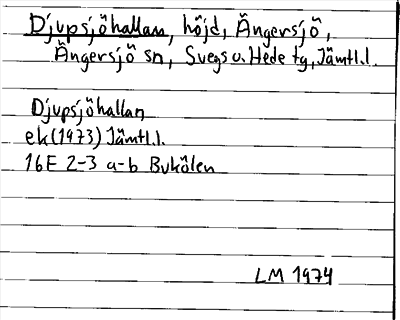 Djupsjöhallan, höjd, Ängersjö,
Ängersjö sn, Svegs o. Hede tg, Jämtl.l.
Djupsjöhallan
ek (1973) Jämtl.l.
16E 2-3 a-b Bukölen
LM 1974